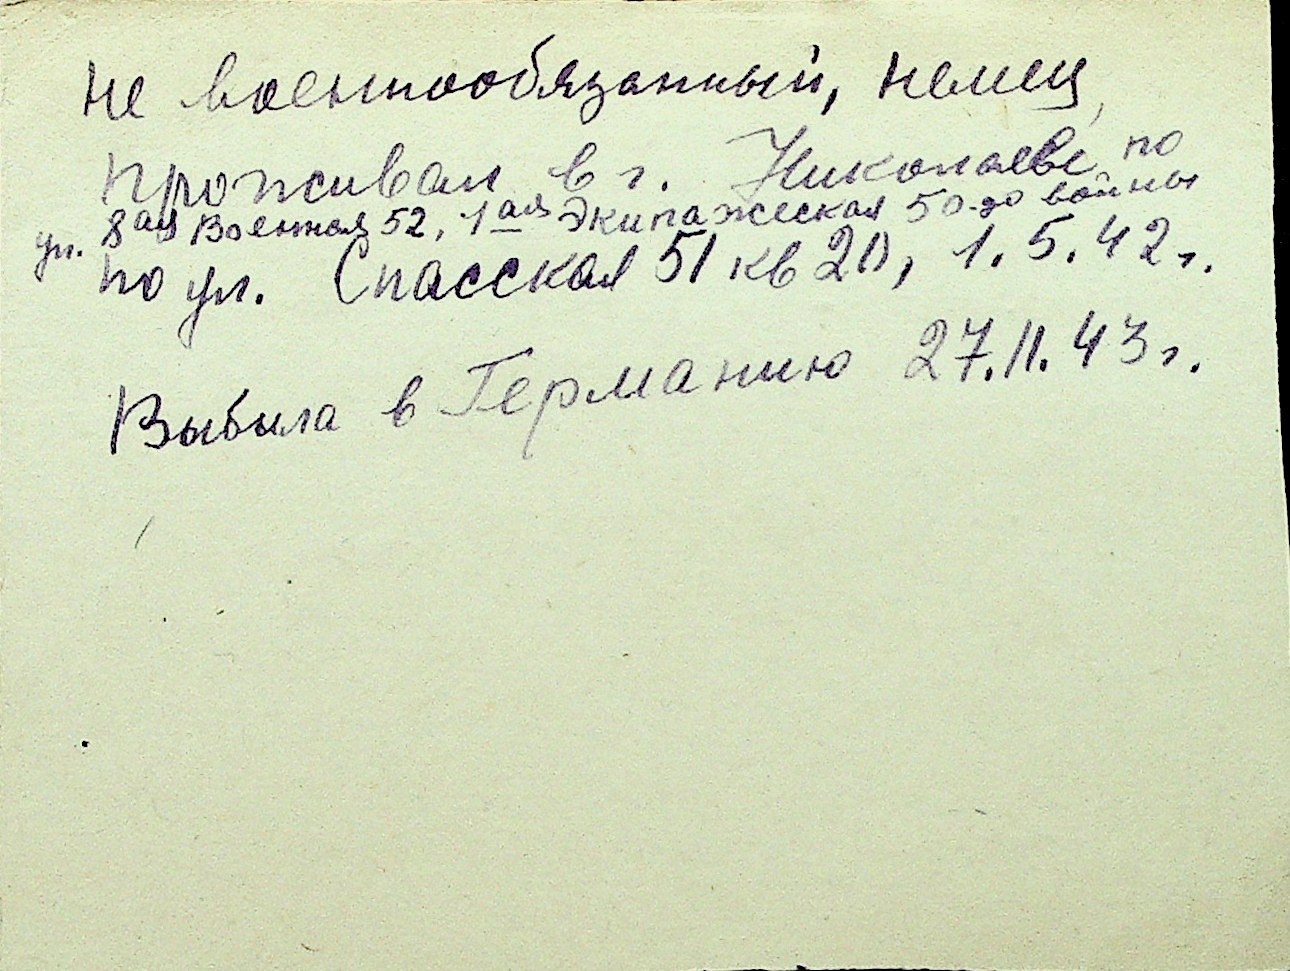 не военнообязанный, немец,
проживал в г. Николаеве по
ул. 8ая Военная 52, 1ая Экипажеская 50 до войны
по ул. Спасская 51 кв 20, 1.5.42 г.
Выбыла в Германию 27.11.43 г.